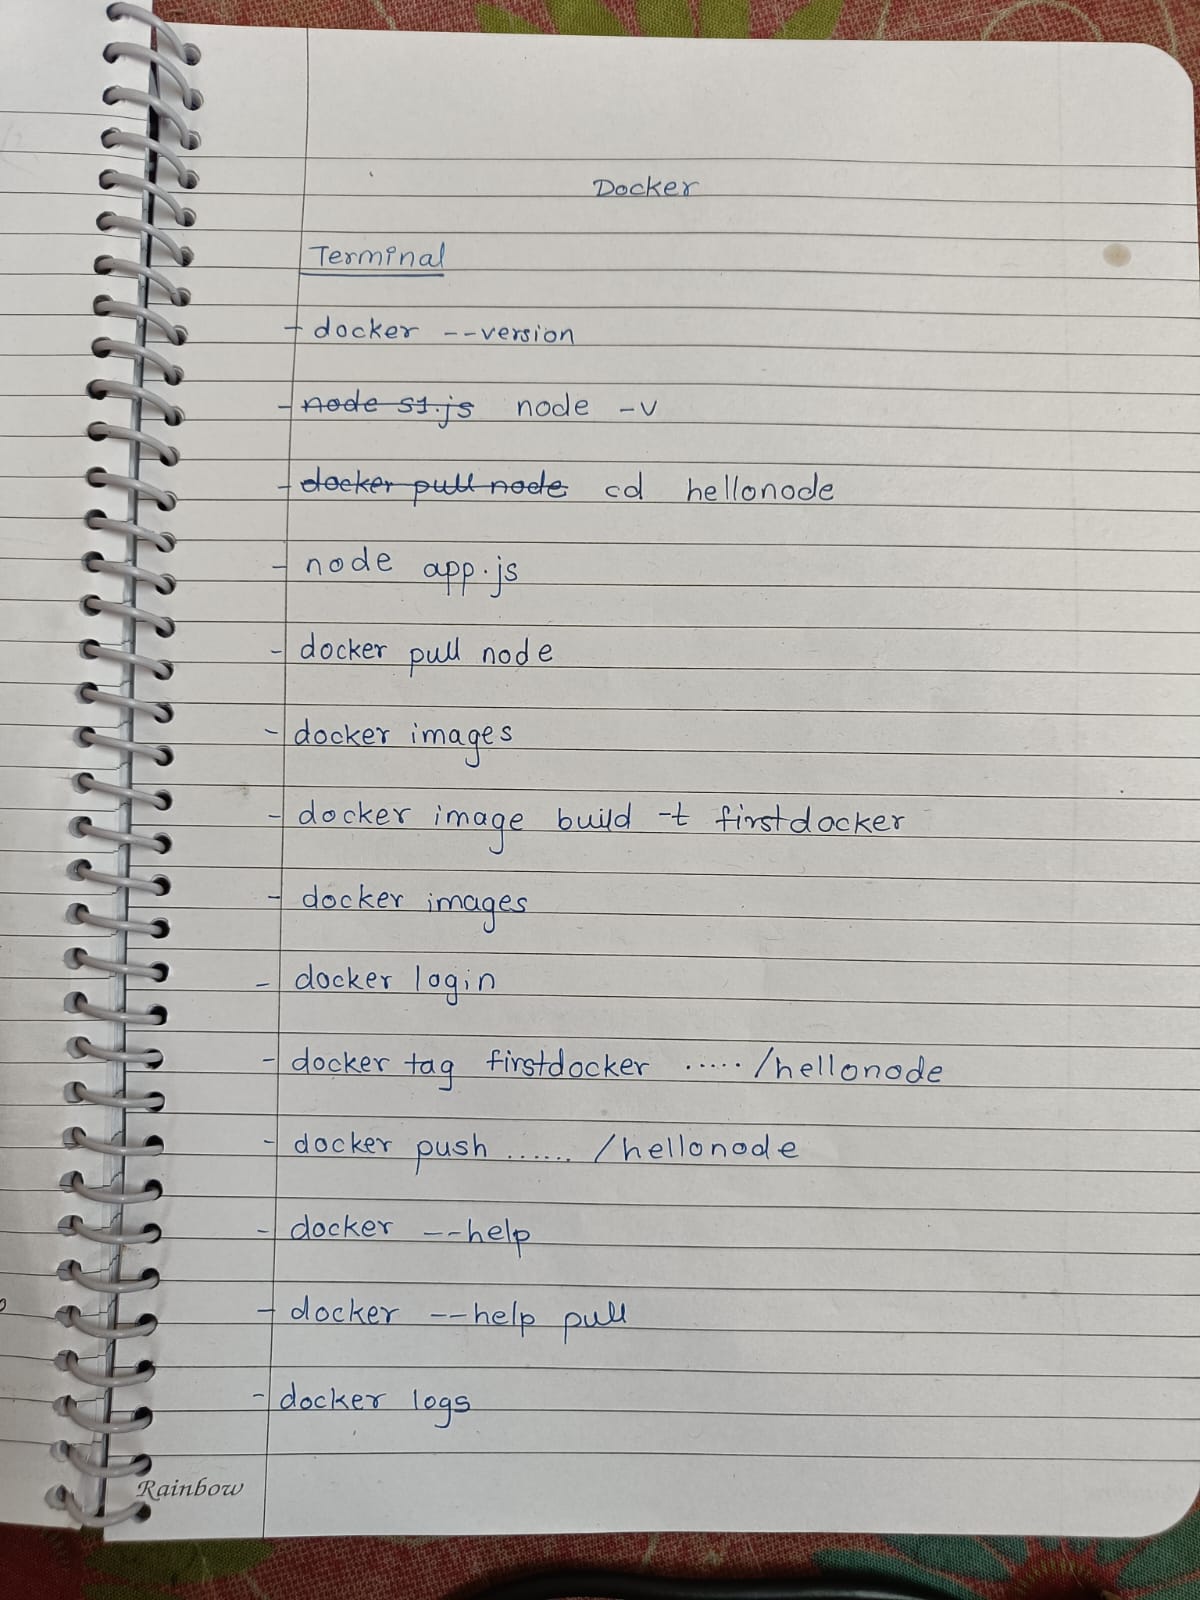 Docker
Terminal
- docker --version
- node s1.js node -v
- docker pull node cd hellonode
- node app.js
- docker pull node
- docker images
- docker image build -t firstdocker
- docker images
- docker login
- docker tag firstdocker ..... /hellonode
- docker push ...... /hellonode
- docker --help
- docker --help pull
- docker logs
Rainbow